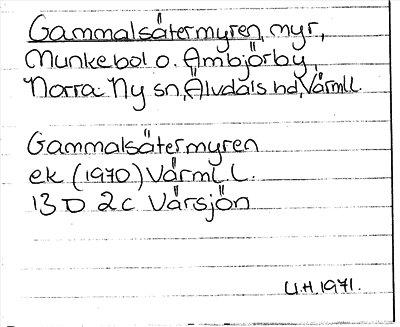 Gammalsätermyren, myr,
Munkebol o. Ambjörby,
Norra Ny sn, Älvdals hd, Värml l.
Gammalsätermyren
ek (1970) Värml l.
13 D 2c Vårsjön
U.H. 1971.